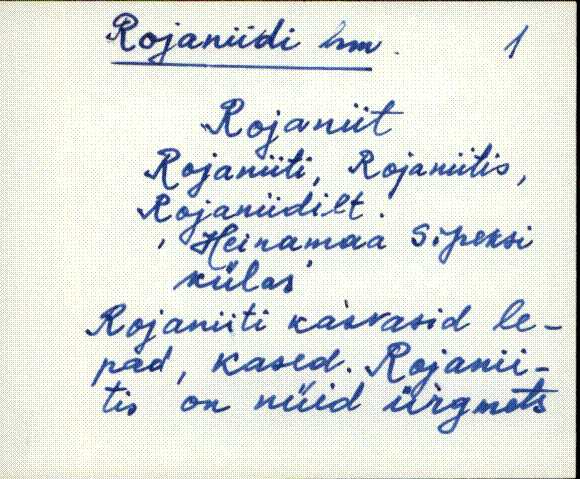 Rojaniidi hm. 1
Rojaniit
Rojaniiti, Rojaniitis,
Rojaniidilt.
'Heinamaa Sipeksi
külas'
Rojaniiti kasvasid le-
pad, kased. Rojanii-
tis on nüid ürgmets